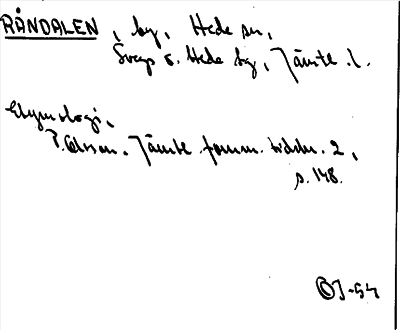 RÅNDALEN, by, Hede sn,
Svegs o. Hede tg, Jämtl. l.
Etymologi.
P. Olsson. Jämtl. fornm. tidskr. 2,
s. 148.
OJ-54